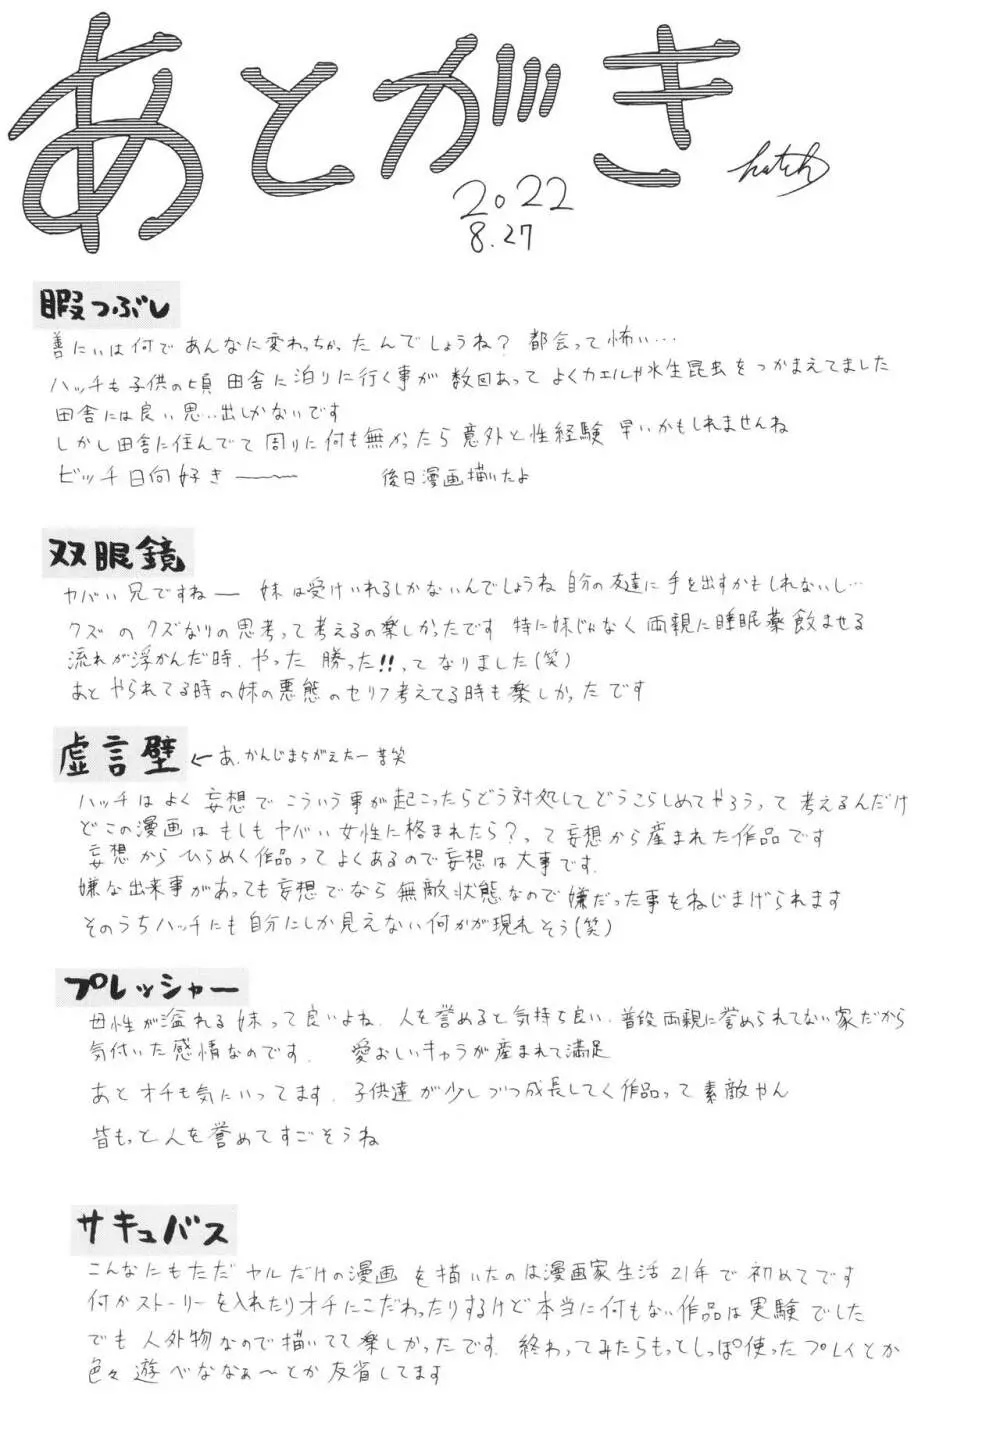 あとがき
hatch
2022
8.27
暇つぶし
善にぃは何であんなに変わっちゃったんでしょうね? 都会って怖い…
ハッチも子供の頃 田舎に泊りに行く事が 数回あって よくカエルや水生昆虫をつかまえてました
田舎には良い思い出しかないです
しかし田舎に住んでて 周りに何も無かったら 意外と性経験 早いかもしれませんね
ビッチ日向好き〜 後日漫画描いたよ
双眼鏡
ヤバい兄ですねー 妹は受けいれるしかないんでしょうね 自分の友達に手を出すかもしれないし…
クズのクズなりの思考って考えるの楽しかったです 特に妹じゃなく両親に睡眠薬飲ませる
流れが浮かんだ時、やった 勝った!!ってなりました(笑)
あと やられてる時の妹の悪態のセリフ考えてる時も楽しかったです
虚言壁 ←あ、かんじまちがえたー苦笑
ハッチはよく妄想でこういう事が起こったらどう対処してどうこらしめてやろうって考えるんだけ
どこの漫画はもしもヤバい女性に格まれたら?って妄想から産まれた作品です
妄想からひらめく作品ってよくあるので妄想は大事です、
嫌な出来事があっても妄想でなら無敵状態なので嫌だった事をねじまげられます
そのうちハッチにも自分にしか見えない何かが現れそう(笑)
プレッシャー
母性が溢れる妹って良いよね、人を誉めると気持ち良い、普段両親に誉められてない家だから
気付いた感情なのです、 愛おしいキャラが産まれて満足
あとオチも気にいってます、子供達が少しづつ成長してく作品って素敵やん
皆もっと人を誉めてすごそうね
サキュバス
こんなにもただヤルだけの漫画を描いたのは漫画家生活21年で初めてです
何かストーリーを入れたりオチにこだわったりするけど本当に何もない作品は実験でした
でも人外物なので描いてて楽しかったです、終わってみたらもっとしっぽ使ったプレイとか
色々遊べななぁ〜とか反省してます